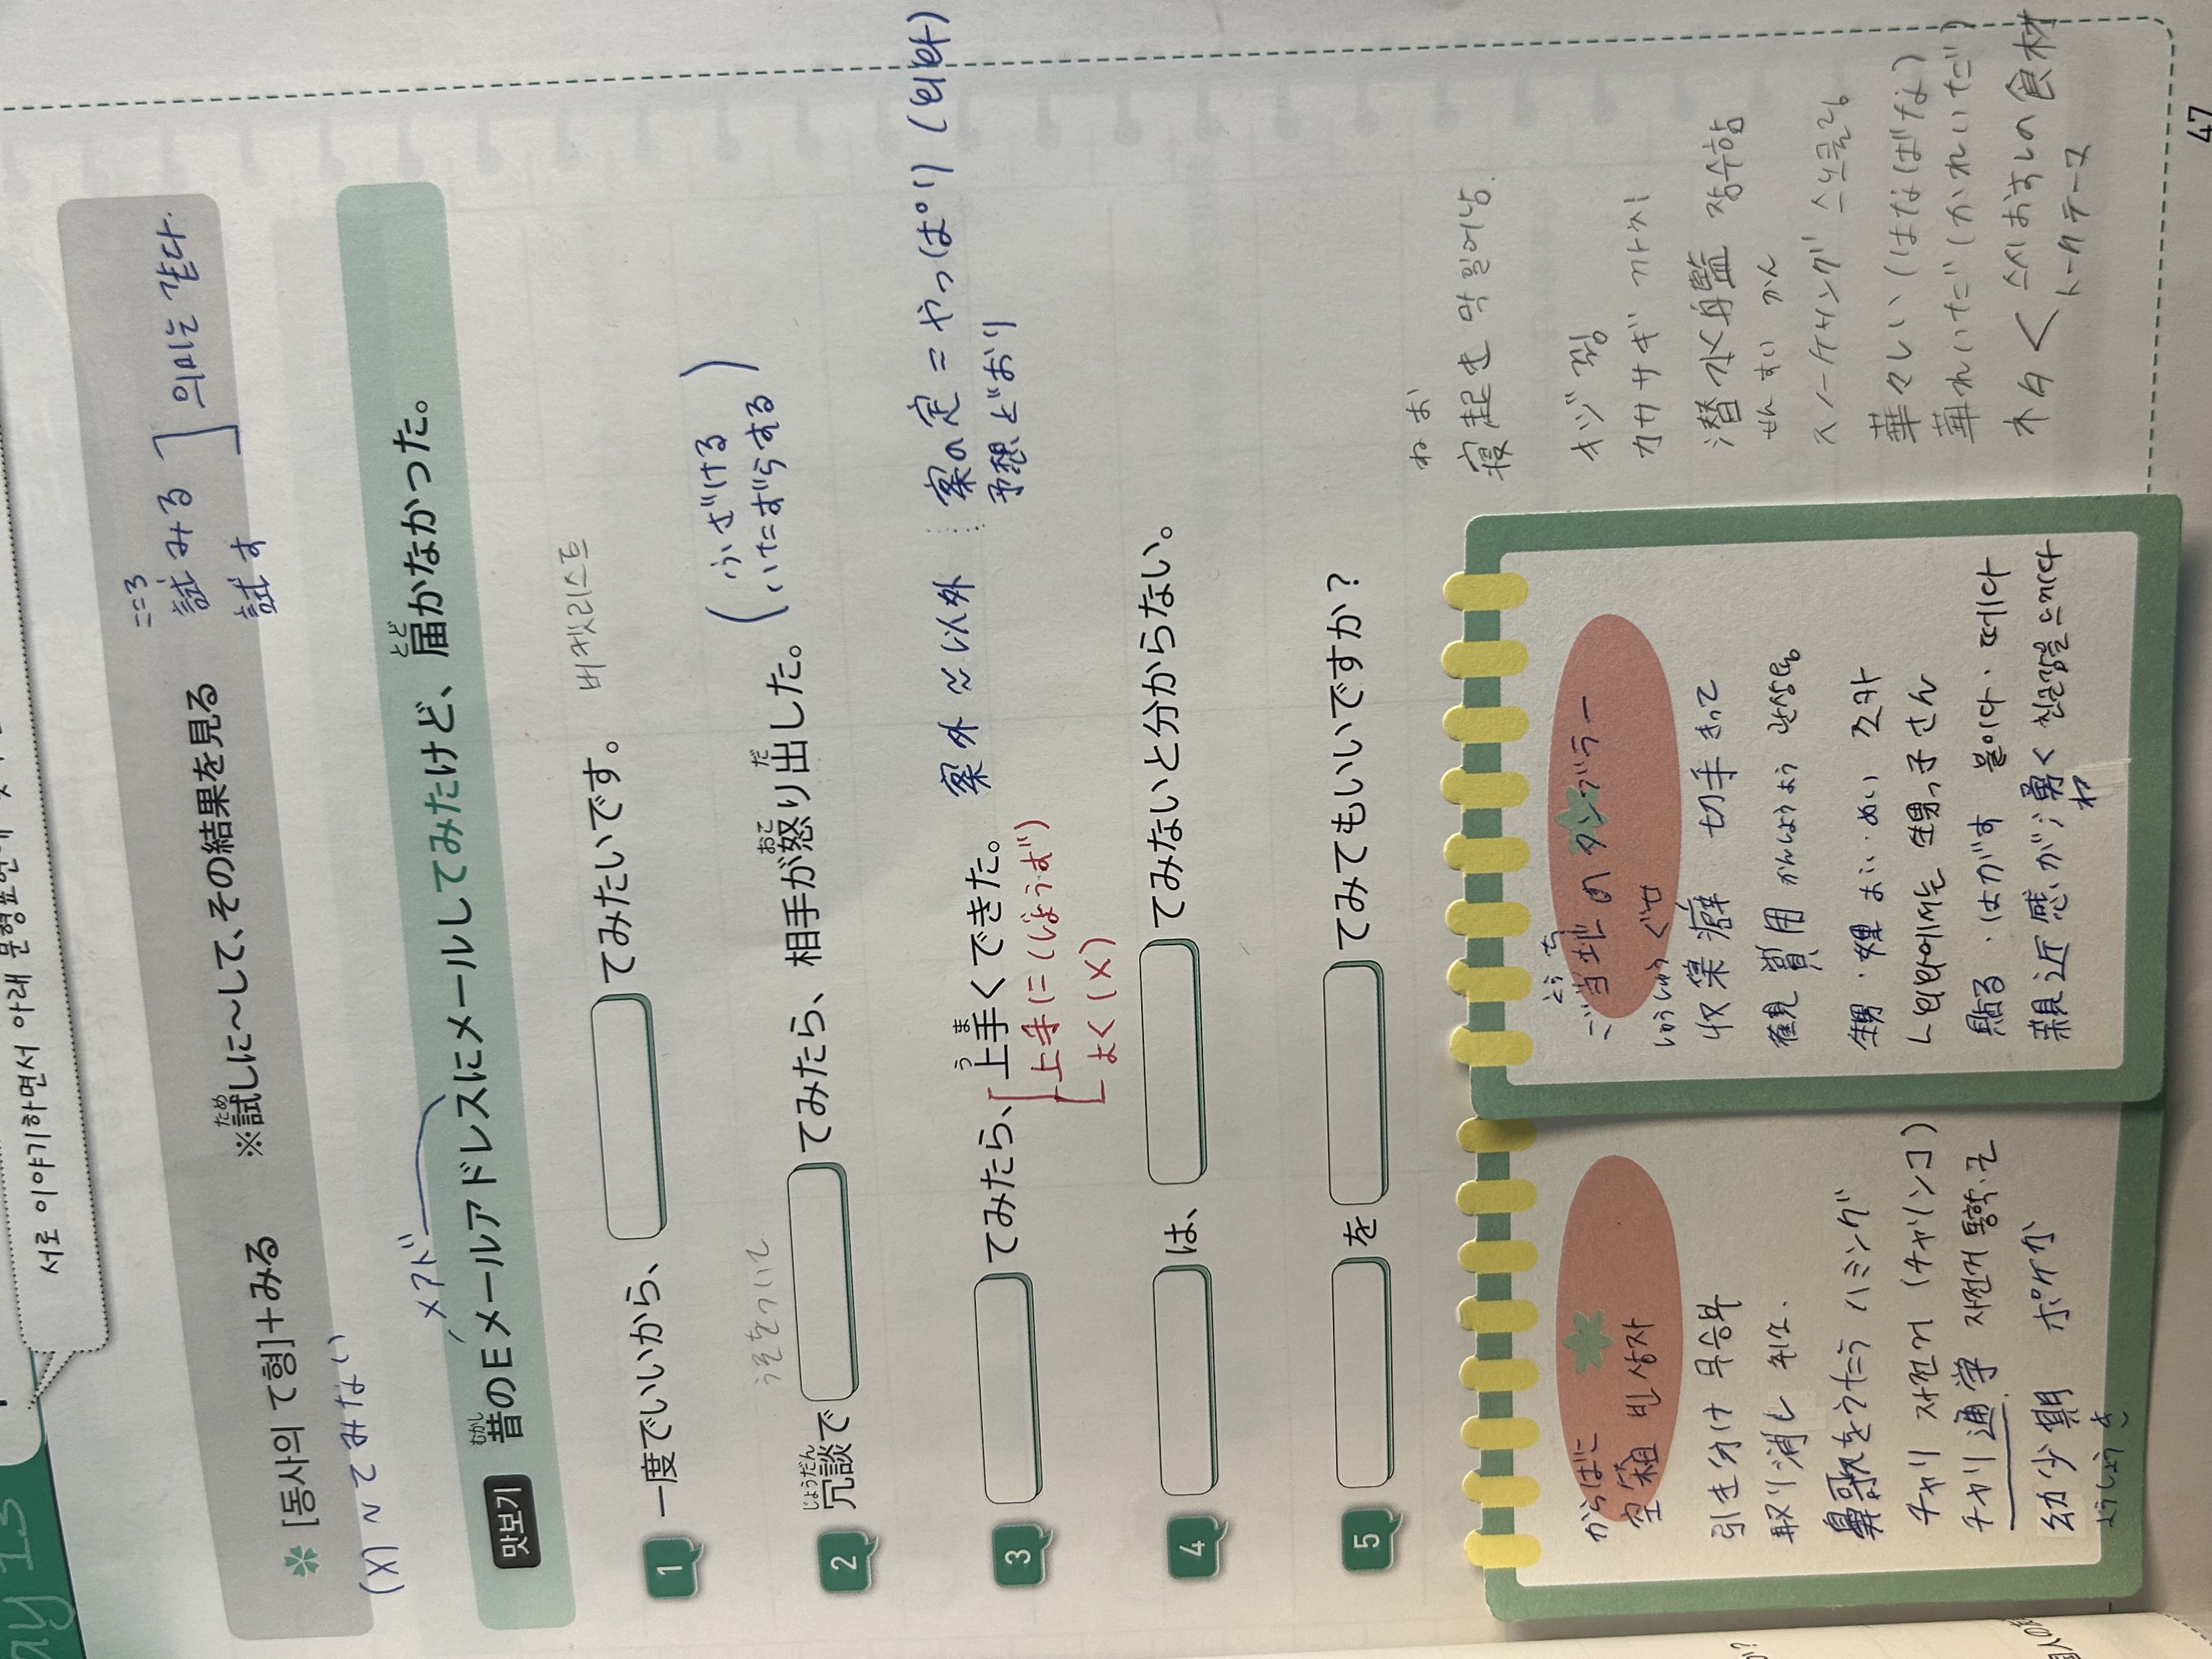 서로 이야기하면서 아래 문형표현에
[동사의 て형]+みる ※試しに〜して、その結果を見る
ため
こころ
試みる
試す
의미는 같다.
(X) 〜てみない
メアド
맛보기 昔のEメールアドレスにメールしてみたけど、届かなかった。
むかし
とど
1 一度でいいから、 てみたいです。 버킷리스트
うそをついて
2 冗談で てみたら、相手が怒り出した。
じょうだん
おこ
だ
(ふざける
いたずらする)
3 てみたら、上手くできた。
うま
上手に(じょうず)
よく(X)
案外 ≈ 以外
案の定 = やっぱり (역시)
予想どおり
4 は、 てみないと分からない。
5 を てみてもいいですか?
からばこ
空箱 빈 상자
引き分け 무승부
取り消し 취소.
鼻歌をうたう ハミング
チャリ 자전거 (チャリンコ)
チャリ通学 자전거 통학·근
幼少期 ポケカ
ようしょうき
とうち
ご当地のタンブラー
しゅうしゅうぐせ
収集癖 切手 きって
観賞用 かんしょうよう 관상용
甥・姪 おい・めい 조카
甥っ子さん
貼る・はがす 붙이다・떼다
親近感が湧く 친근감을 느끼다
わ
ねお
寝起き 막 일어남.
キジ 꿩
カササギ 까치
潜水艦 잠수함
せんすい かん
スノーケリング 스노클링
華々しい (はなばな)
華れいだ (かれいだ)
ネタ < 스시おすしの食材
トークテーマ
47